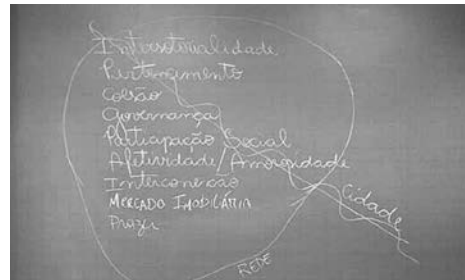 Intersetorialidade
Pertencimento
Coesão
Governança
Participação Social
Afetividade/Amorosidade
Interconexão
MERCADO IMOBILIÁRIA
Prazer
Cidade
REDE